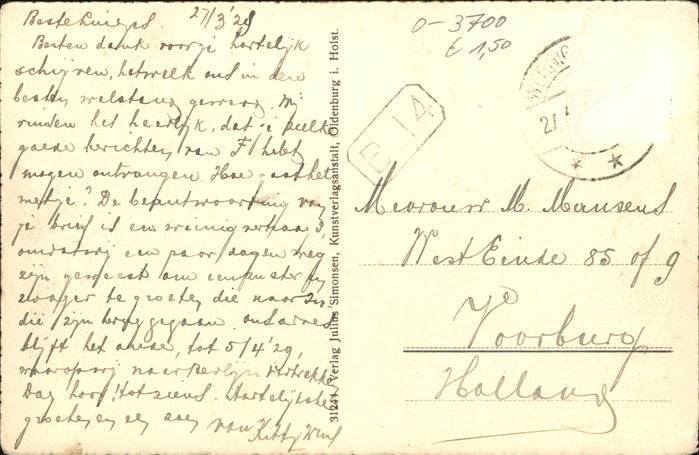 27/3'29
Beste
Besten dank voor je hartelijk
schijven, hetwelk ons in den
besten welstand gewerd. Wij
vinden het heerlijk, dat je zulke
goede berichten van F hebt
mogen ontvangen. Hoe gaat het
met je? De beantwoording van
je brief is een weinig
een paar dagen weg
zijn geweest om
zwager te groeten, die naar
die zijn terug gegaan. ons adres
blijft het oude, tot 5/4'29,
waarop wij naar Berlijn vertrekken
Dag hoor! tot ziens. Hartelijke
groeten en een van
Kitty
31241 Verlag Julius Simonsen, Kunstverlagsanstalt, Oldenburg i. Holst.
0-3700
€ 1,50
B 14
27.
Mevrouw M. Mansens
West Einde 85 of 9
Voorburg
Holland